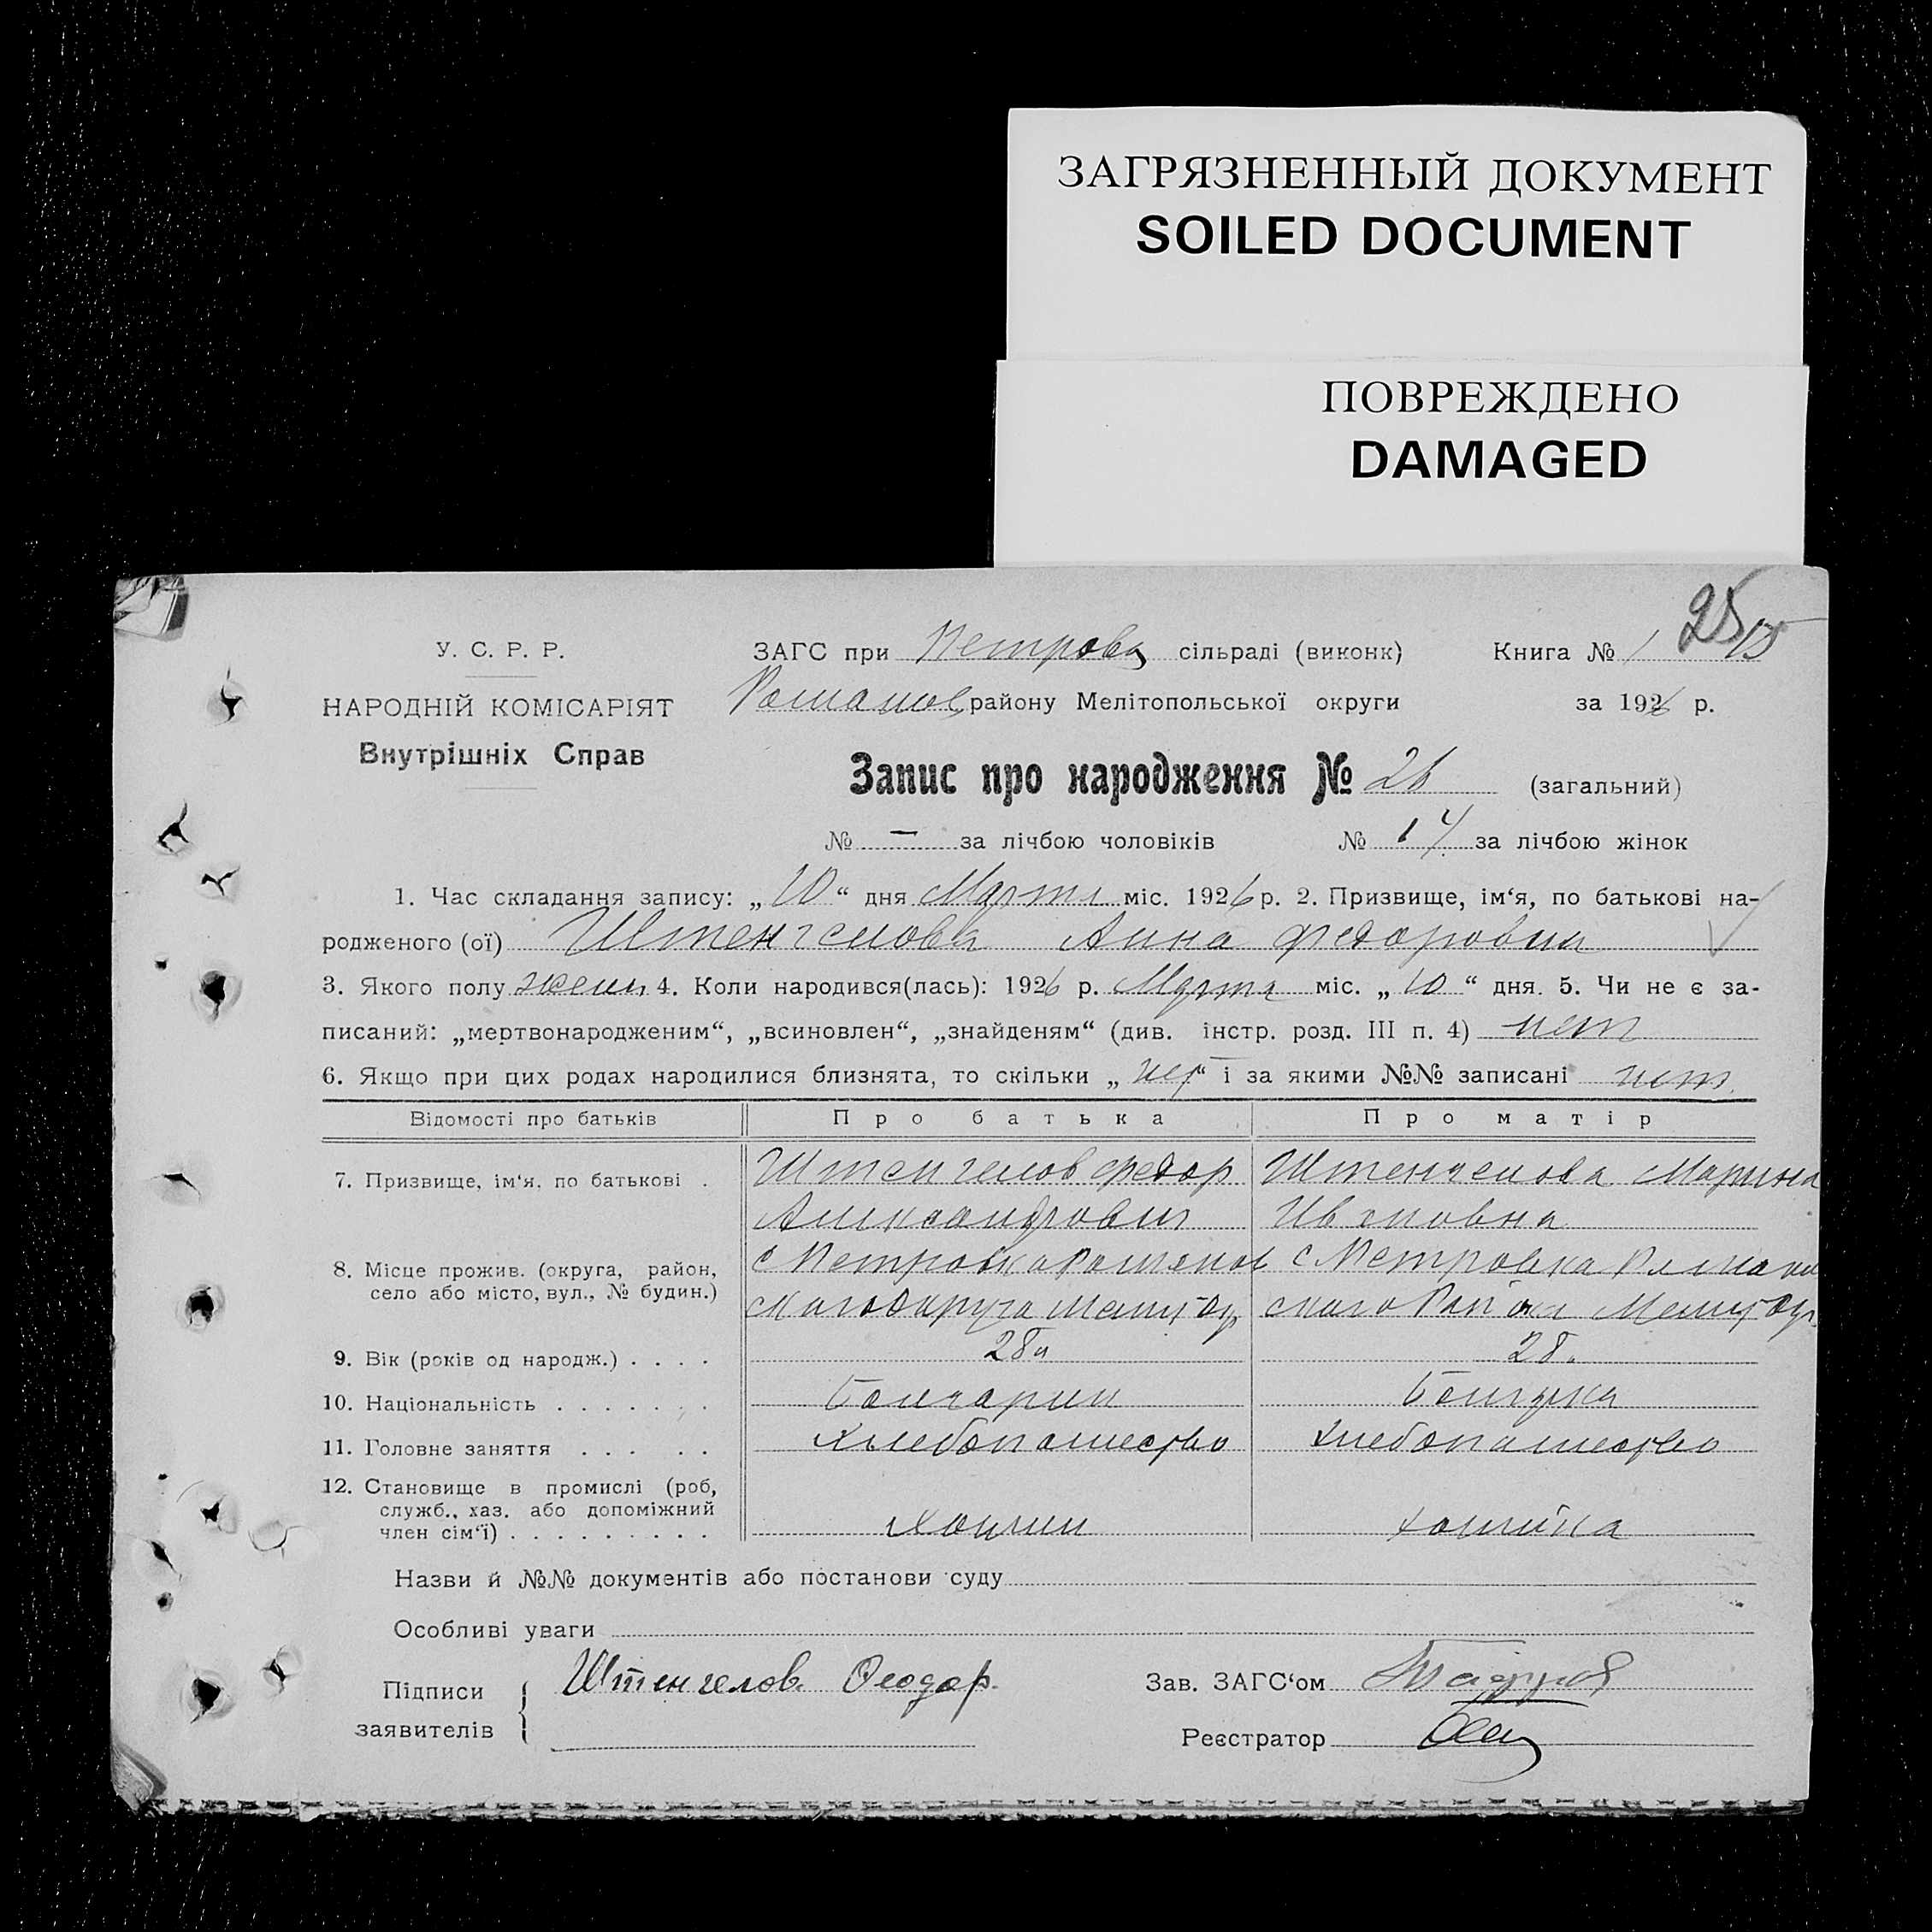 ЗАГРЯЗНЕННЫЙ ДОКУМЕНТ
SOILED DOCUMENT
ПОВРЕЖДЕНО
DAMAGED
25
У. С. Р. Р.
НАРОДНІЙ КОМІСАРІЯТ
Внутрішніх Справ
ЗАГС при Петровц сільраді (виконк) Книга № 1
району Мелітопольської округи за 1926 р.
Запис про народження № 26 (загальний)
№ — за лічбою чоловіків № 14. за лічбою жінок
1. Час складання запису: „10“ дня Марта міс. 1926 р. 2. Призвище, ім‘я, по батькові на-
родженого (ої) Штенгелова Анна Федоровна
3. Якого полу женс 4. Коли народився(лась): 1926 р. Марта міс. „10“ дня. 5. Чи не є за-
писаний: „мертвонародженим“, „всиновлен“, „знайденям“ (див. інстр. розд. III п. 4) нет
6. Якщо при цих родах народилися близнята, то скільки „нет“ і за якими №№ записані нет
Відомості про батьків Про батька Про матір
7. Призвище, ім‘я, по батькові . Штенгелов Федор Штенгелова Марина
Александрович Ивановна
8. Місце прожив. (округа, район, с Петровка Романов с Петровка Романов
село або місто, вул., № будин.) скаго округа Мелит ок скаго Района Мелит ок
9. Вік (років од народж.) . . . . 28 28.
10. Національність . . . . . . . Болгарин Болгарка
11. Головне заняття . . . . . Хлебопашество Хлебопашество
12. Становище в промислі (роб,
служб., хаз. або допоміжний
член сім‘ї) . . . . . . . . . Хозяин хозяйка
Назви й №№ документів або постанови суду
Особливі уваги
Підписи
заявителів
Штенгелов. Феодор.
Зав. ЗАГС‘ом
Реєстратор